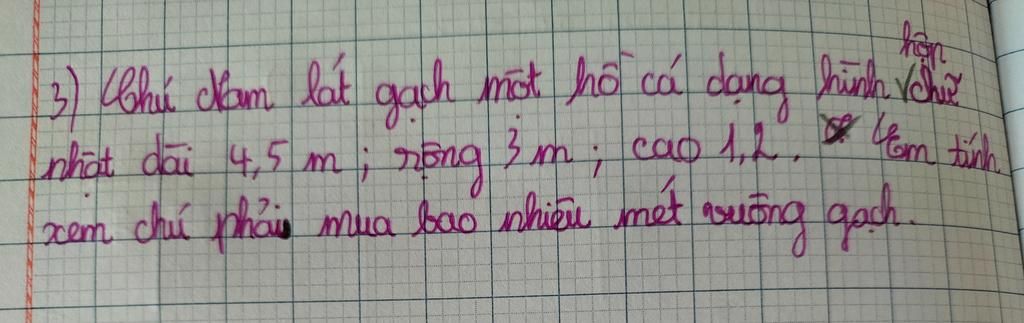 3) Chú Nam lát gạch một hồ cá dạng hình hộp chữ
nhật dài 4,5 m ; rộng 3 m ; cao 1,2. Em tính
xem chú phải mua bao nhiêu mét vuông gạch.